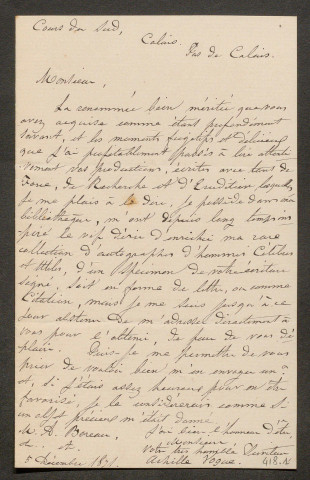 Cours du Sud,
Calais
Pas de Calais.
Monsieur,
La renommée bien méritée que vous
avez acquise comme étant profondément
savant, et les moments fugitifs et délicieux
que j'ai profitablement passés à lire attenti-
vement vos productions, écrites avec tant de
verve, de Recherche et d'Erudition lesquels
je me plais à le dire, je possède dans ma
bibliothèque, m'ont depuis long temps ins-
piré le vif désir d'enrichir ma rare
collection d'autographes d'hommes Célèbres
et Utiles, d'un Spécimen de votre écriture
signé, soit en forme de lettre, ou comme
Citation, mais je me suis jusqu'à ce
jour abstenu de m'adresser directement à
vous pour l'obtenir, de peur de vous dé-
plaire. Puis-je me permettre de vous
prier de vouloir bien m'en envoyer un
et, si j'étais assez heureux pour en être
favorisé, je le considérerais comme si
un objet précieux m'était donné.
J'ai bien l'honneur d'être,
M. A. Boreau,
Monsieur
Votre très humble Serviteur
5 Décembre 1871.
Achille Vogue.
418. N